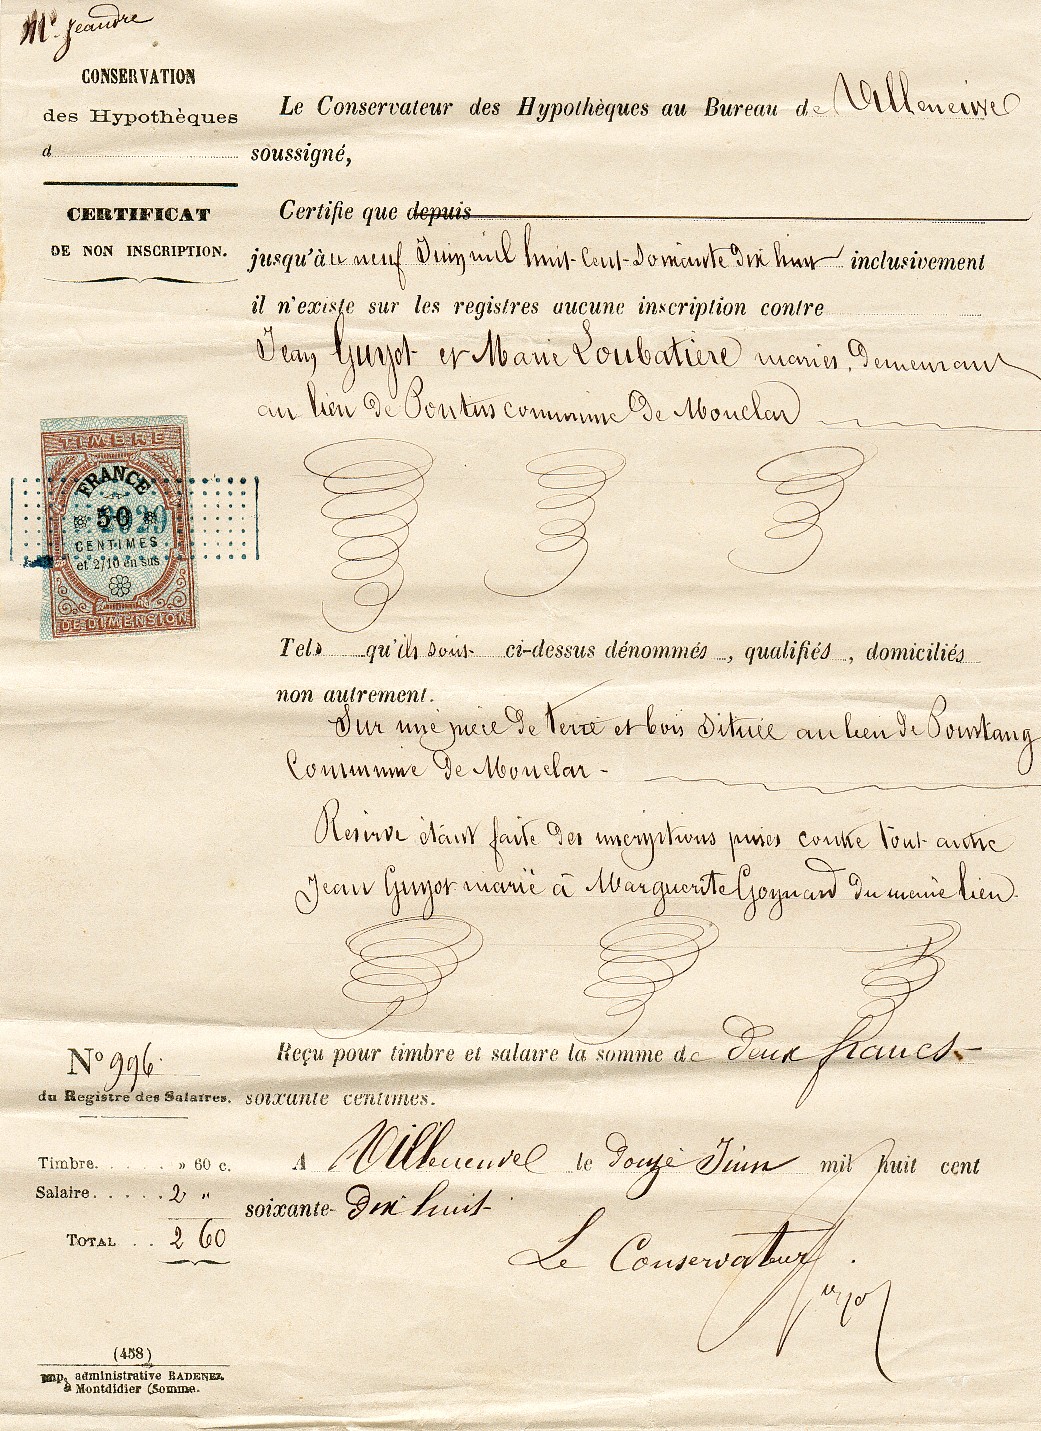 Mr. Jeandre
CONSERVATION
des Hypothèques
d
CERTIFICAT
DE NON INSCRIPTION.
Le Conservateur des Hypothèques au Bureau de Villeneuve
soussigné,
Certifie que depuis
jusqu'à u neuf Juin mil huit-cent-soixante dix huit inclusivement
il n'existe sur les registres aucune inscription contre
Jean Guyot et Marie Loubatière mariés, demeurant
au lieu de Pontus commune de Monclar
TIMBRE
FRANCE
50
CENTIMES
et 2/10 en sus
DE DIMENSION
Tels qu'ils sont ci-dessus dénommés, qualifiés, domiciliés
non autrement.
Sur une pièce de Terre et bois située au lieu de
Commune de Monclar -
Réserve étant faite des inscriptions prises contre tout autre
Jean Guyot marié à Marguerite Goynard du même lieu.
No 996.
du Registre des Salaires.
Reçu pour timbre et salaire la somme de deux francs
soixante centimes.
Timbre. . . . . . » 60 c.
Salaire. . . . . . 2 "
TOTAL . . 2 60
A Villeneuve le douze Juin mil huit cent
soixante- dix huit.
Le Conservateur
(458)
Imp. administrative RADENEZ.
à Montdidier (Somme.